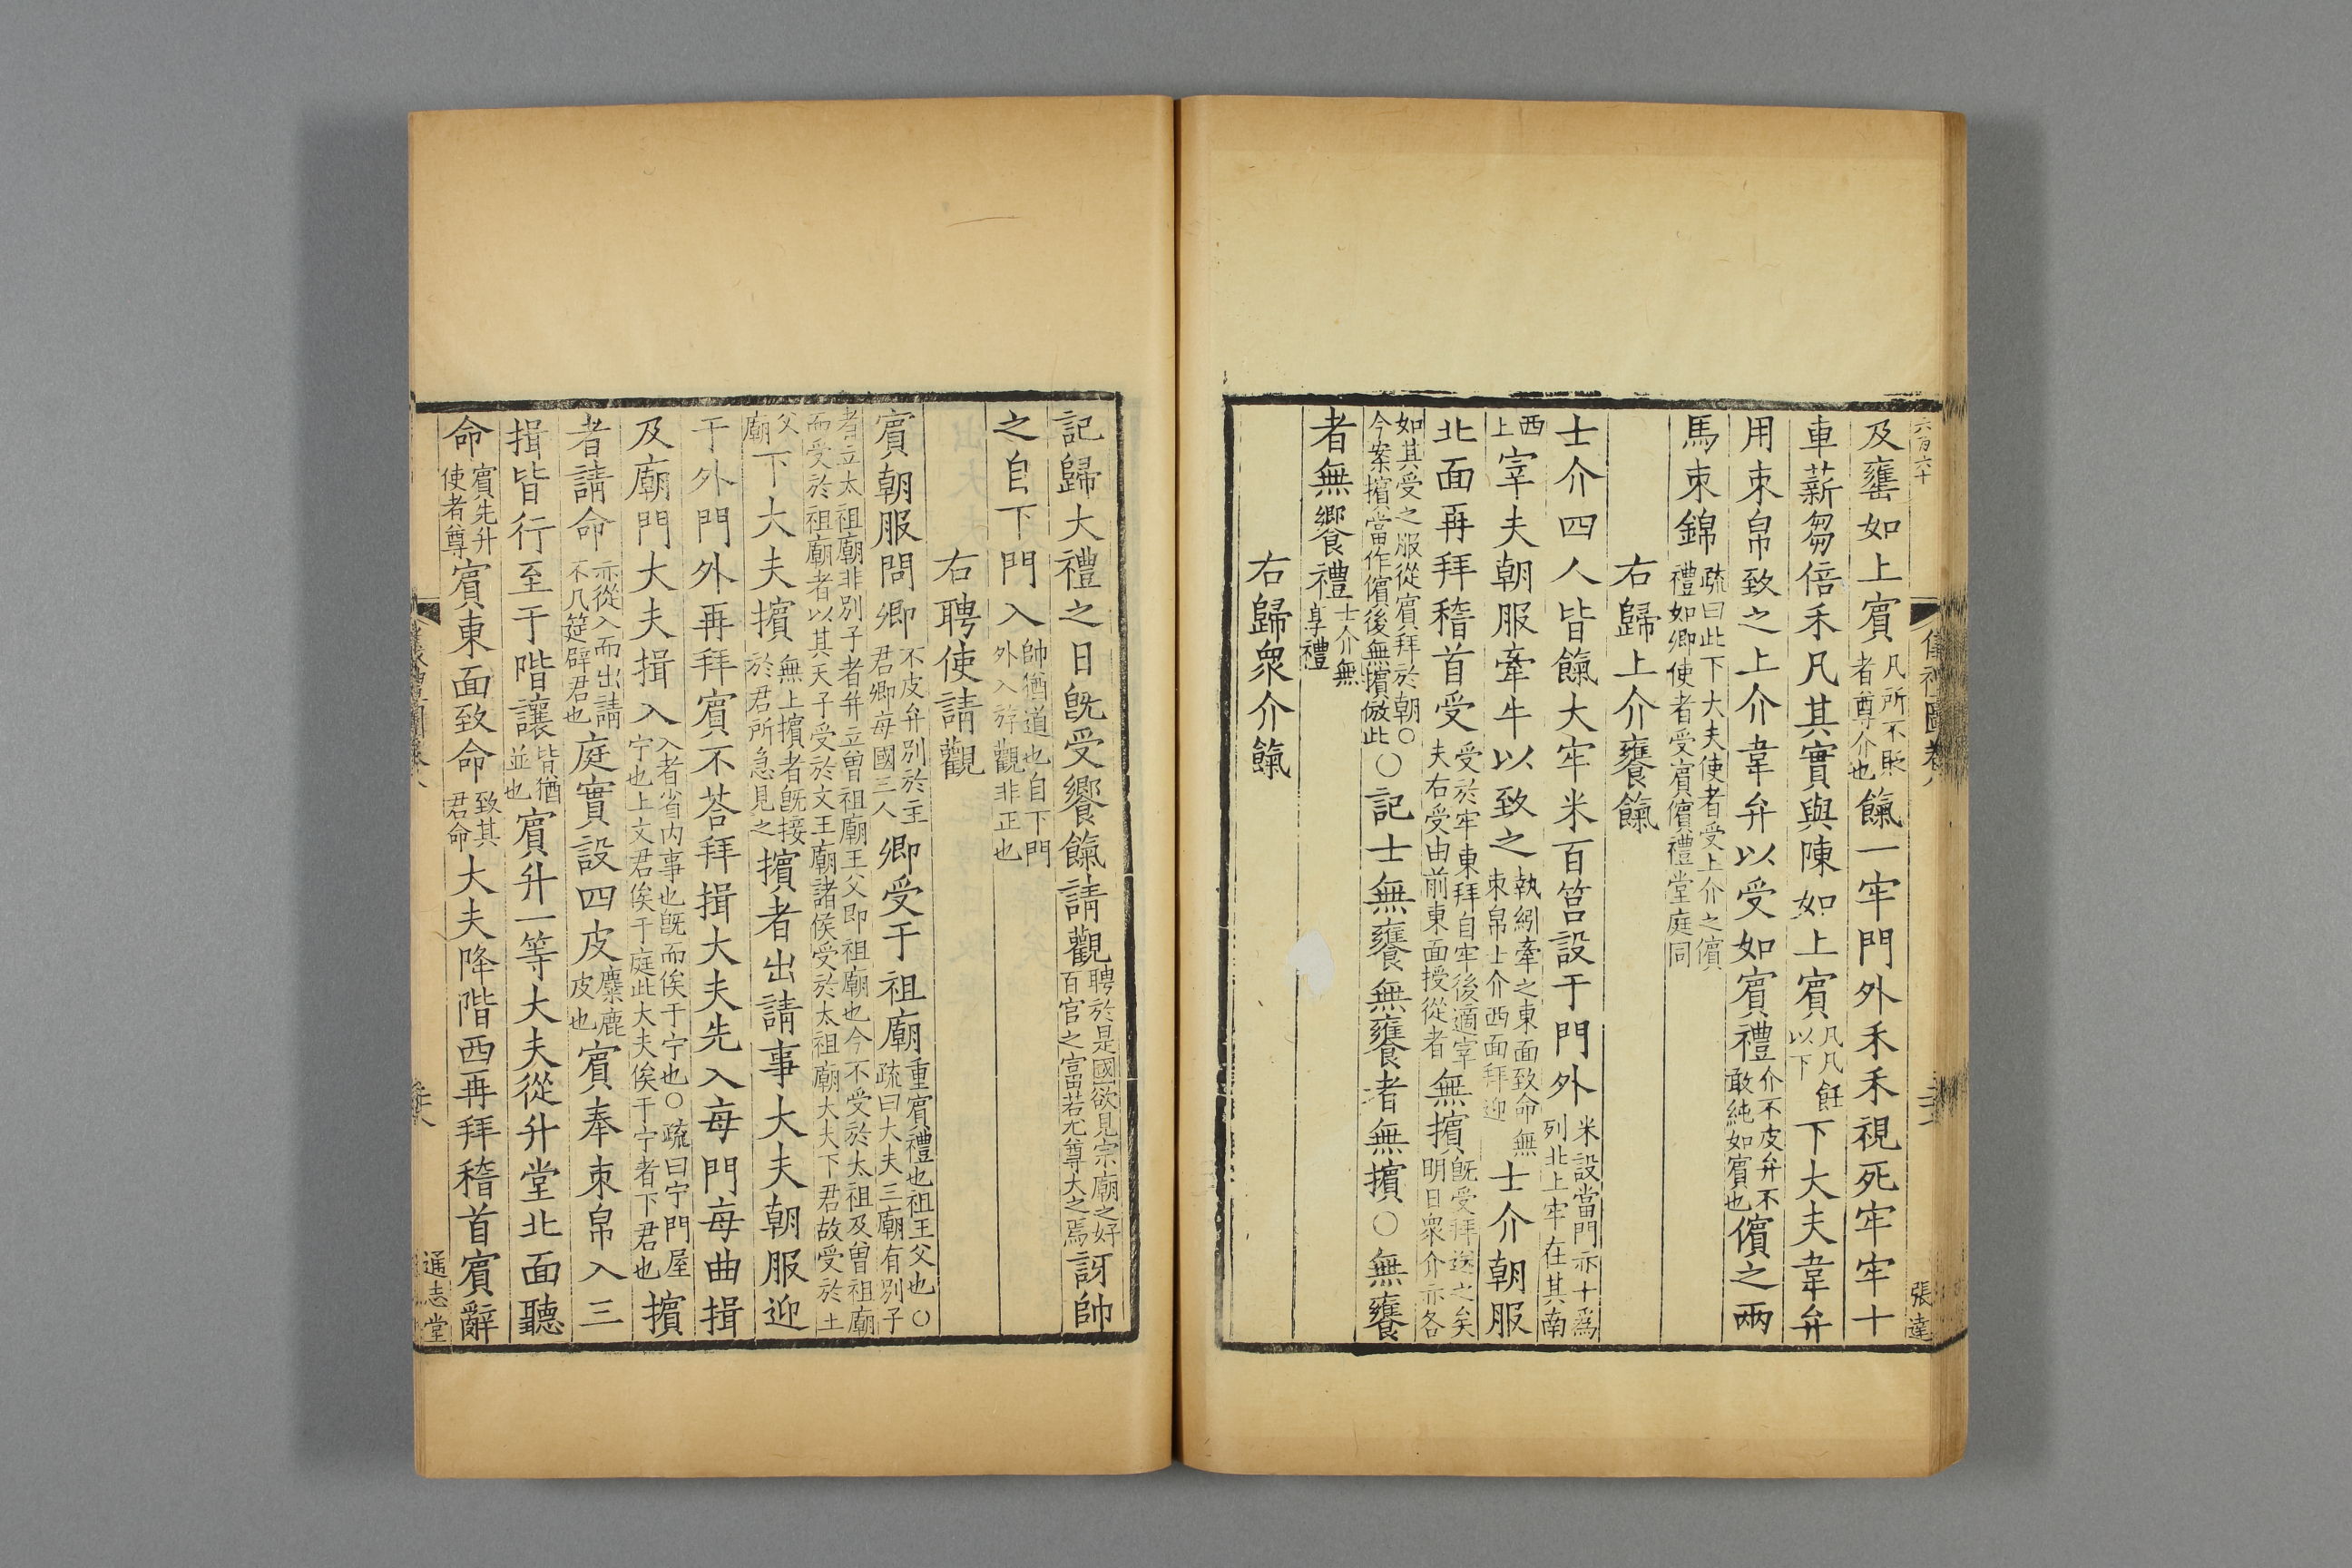 六百六十
儀禮圖卷八
張達
及罋如上賔凡所不貶者尊介也餼一牢門外禾禾視死牢牢十
車薪芻倍禾凡其實與陳如上賔凡凡飪以下下大夫韋弁
用束帛致之上介韋弁以受如賔禮介不皮弁不敢純如賔也儐之兩
馬束錦疏曰此下大夫使者受上介之儐禮如卿使者受賔儐禮堂庭同
右歸上介饔餼
士介四人皆餼大牢米百筥設于門外米設當門亦十爲列北上牢在其南
西上宰夫朝服牽牛以致之執紖牽之東面致命無束帛士介西面拜迎士介朝服
北面再拜稽首受受於牢東拜自牢後適宰夫右受由前東面授從者無擯旣受拜送之矣明日衆介亦各
如其受之服從賔拜於朝○今案擯當作儐後無擯倣此○記士無饔無饔者無擯○無饔
者無饗禮士介無享禮
右歸衆介餼
記歸大禮之日旣受饔餼請觀聘於是國欲見宗廟之好百官之富若尤尊大之焉訝帥
之自下門入帥猶道也自下門外入游觀非正也
右聘使請觀
賔朝服問卿不皮弁別於主君卿每國三人卿受于祖廟重賔禮也祖王父也○疏曰大夫三廟有別子
者立太祖廟非別子者幷立曽祖廟王父即祖廟也今不受於太祖及曽祖廟而受於祖廟者以其天子受於文王廟諸侯受於太祖廟大夫下君故受於王
父廟下大夫擯無上擯者旣接於君所急見之擯者出請事大夫朝服迎
于外門外再拜賔不荅拜揖大夫先入每門每曲揖
及廟門大夫揖入入者省内事也旣而俟于宁也○疏曰宁門屋宁也上文君俟于庭此大夫俟于宁者下君也擯
者請命亦從入而出請不几筵辟君也庭實設四皮麋鹿皮也賔奉束帛入三
揖皆行至于階讓皆猶並也賔升一等大夫從升堂北面聽
命賔先升使者尊賔東面致命致其君命大夫降階西再拜稽首賔辭
通志堂